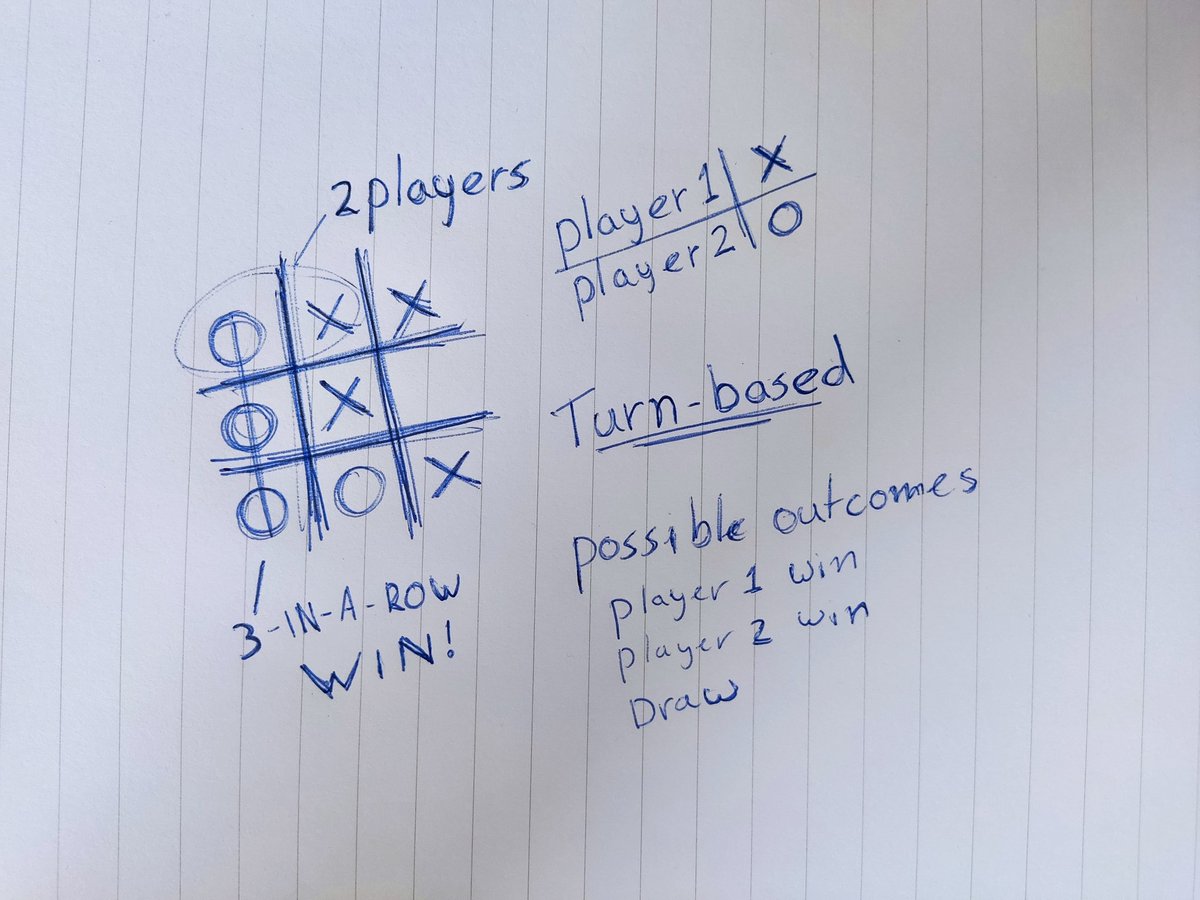 2 players
O X X
O X
O O X
3-IN-A-ROW
WIN!
player 1 X
player 2 O
Turn-based
possible outcomes
player 1 win
player 2 win
Draw